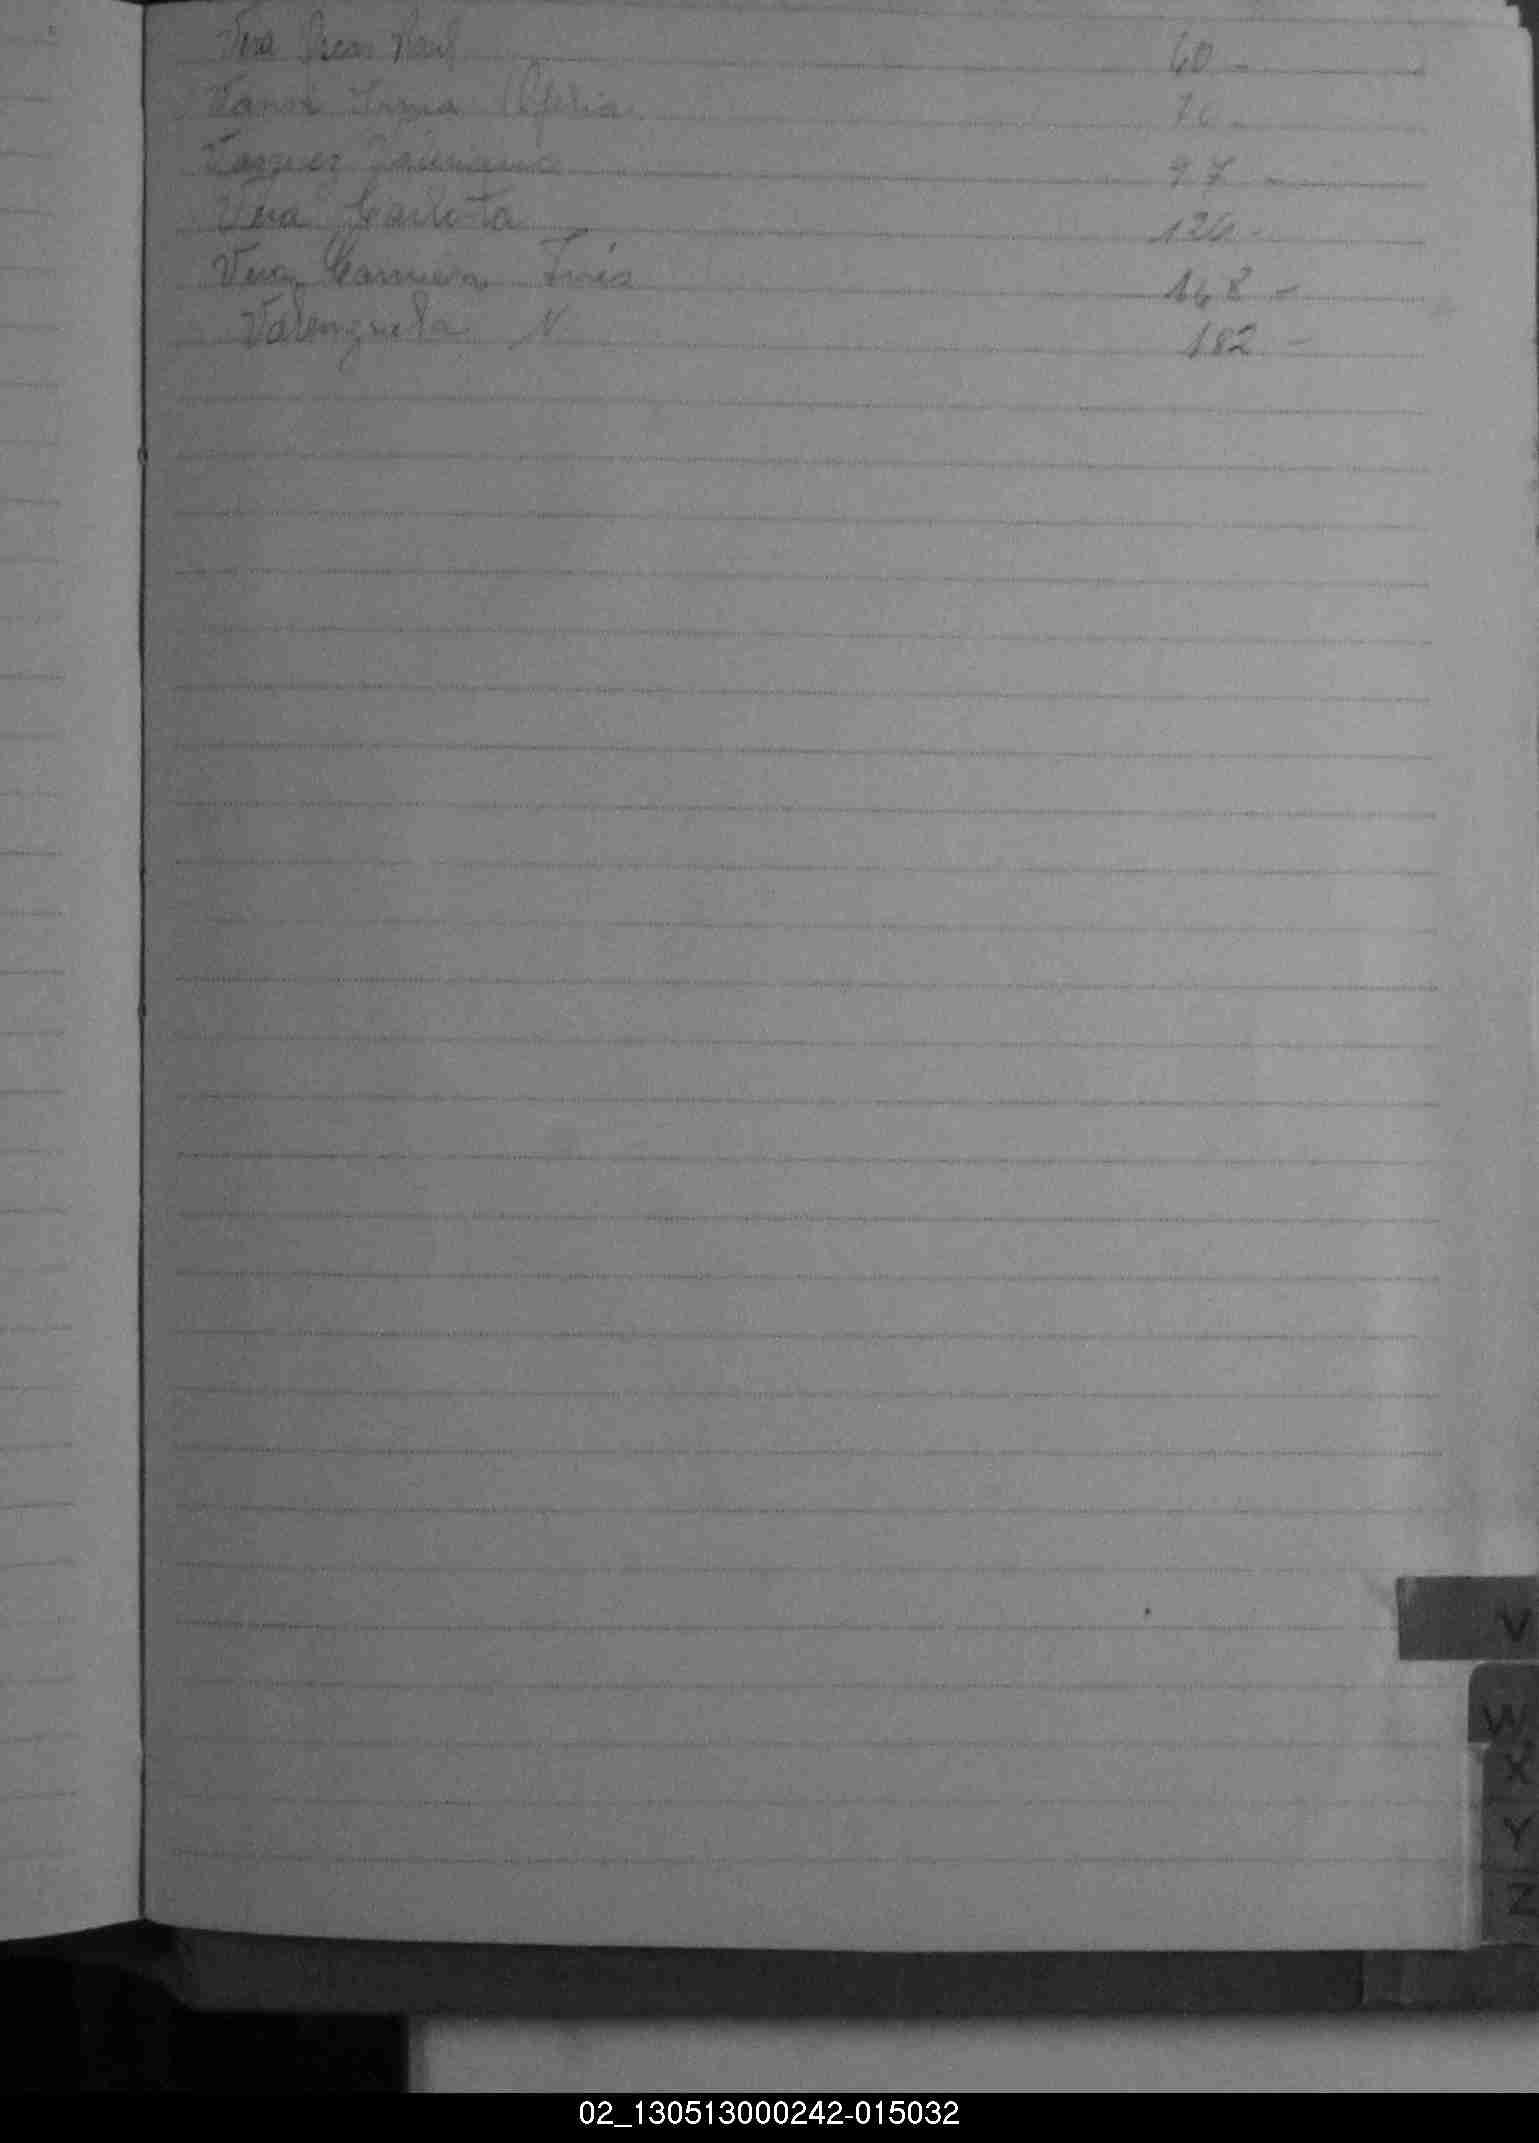 Vera Oscar Raul 60 -
Irma Ofelia 70 -
Vasquez 97 -
Vera Carlota 124 -
Vera Carmen Inés 148 -
Valenzuela N 182 -
V
W
X
Y
Z
02_130513000242-015032